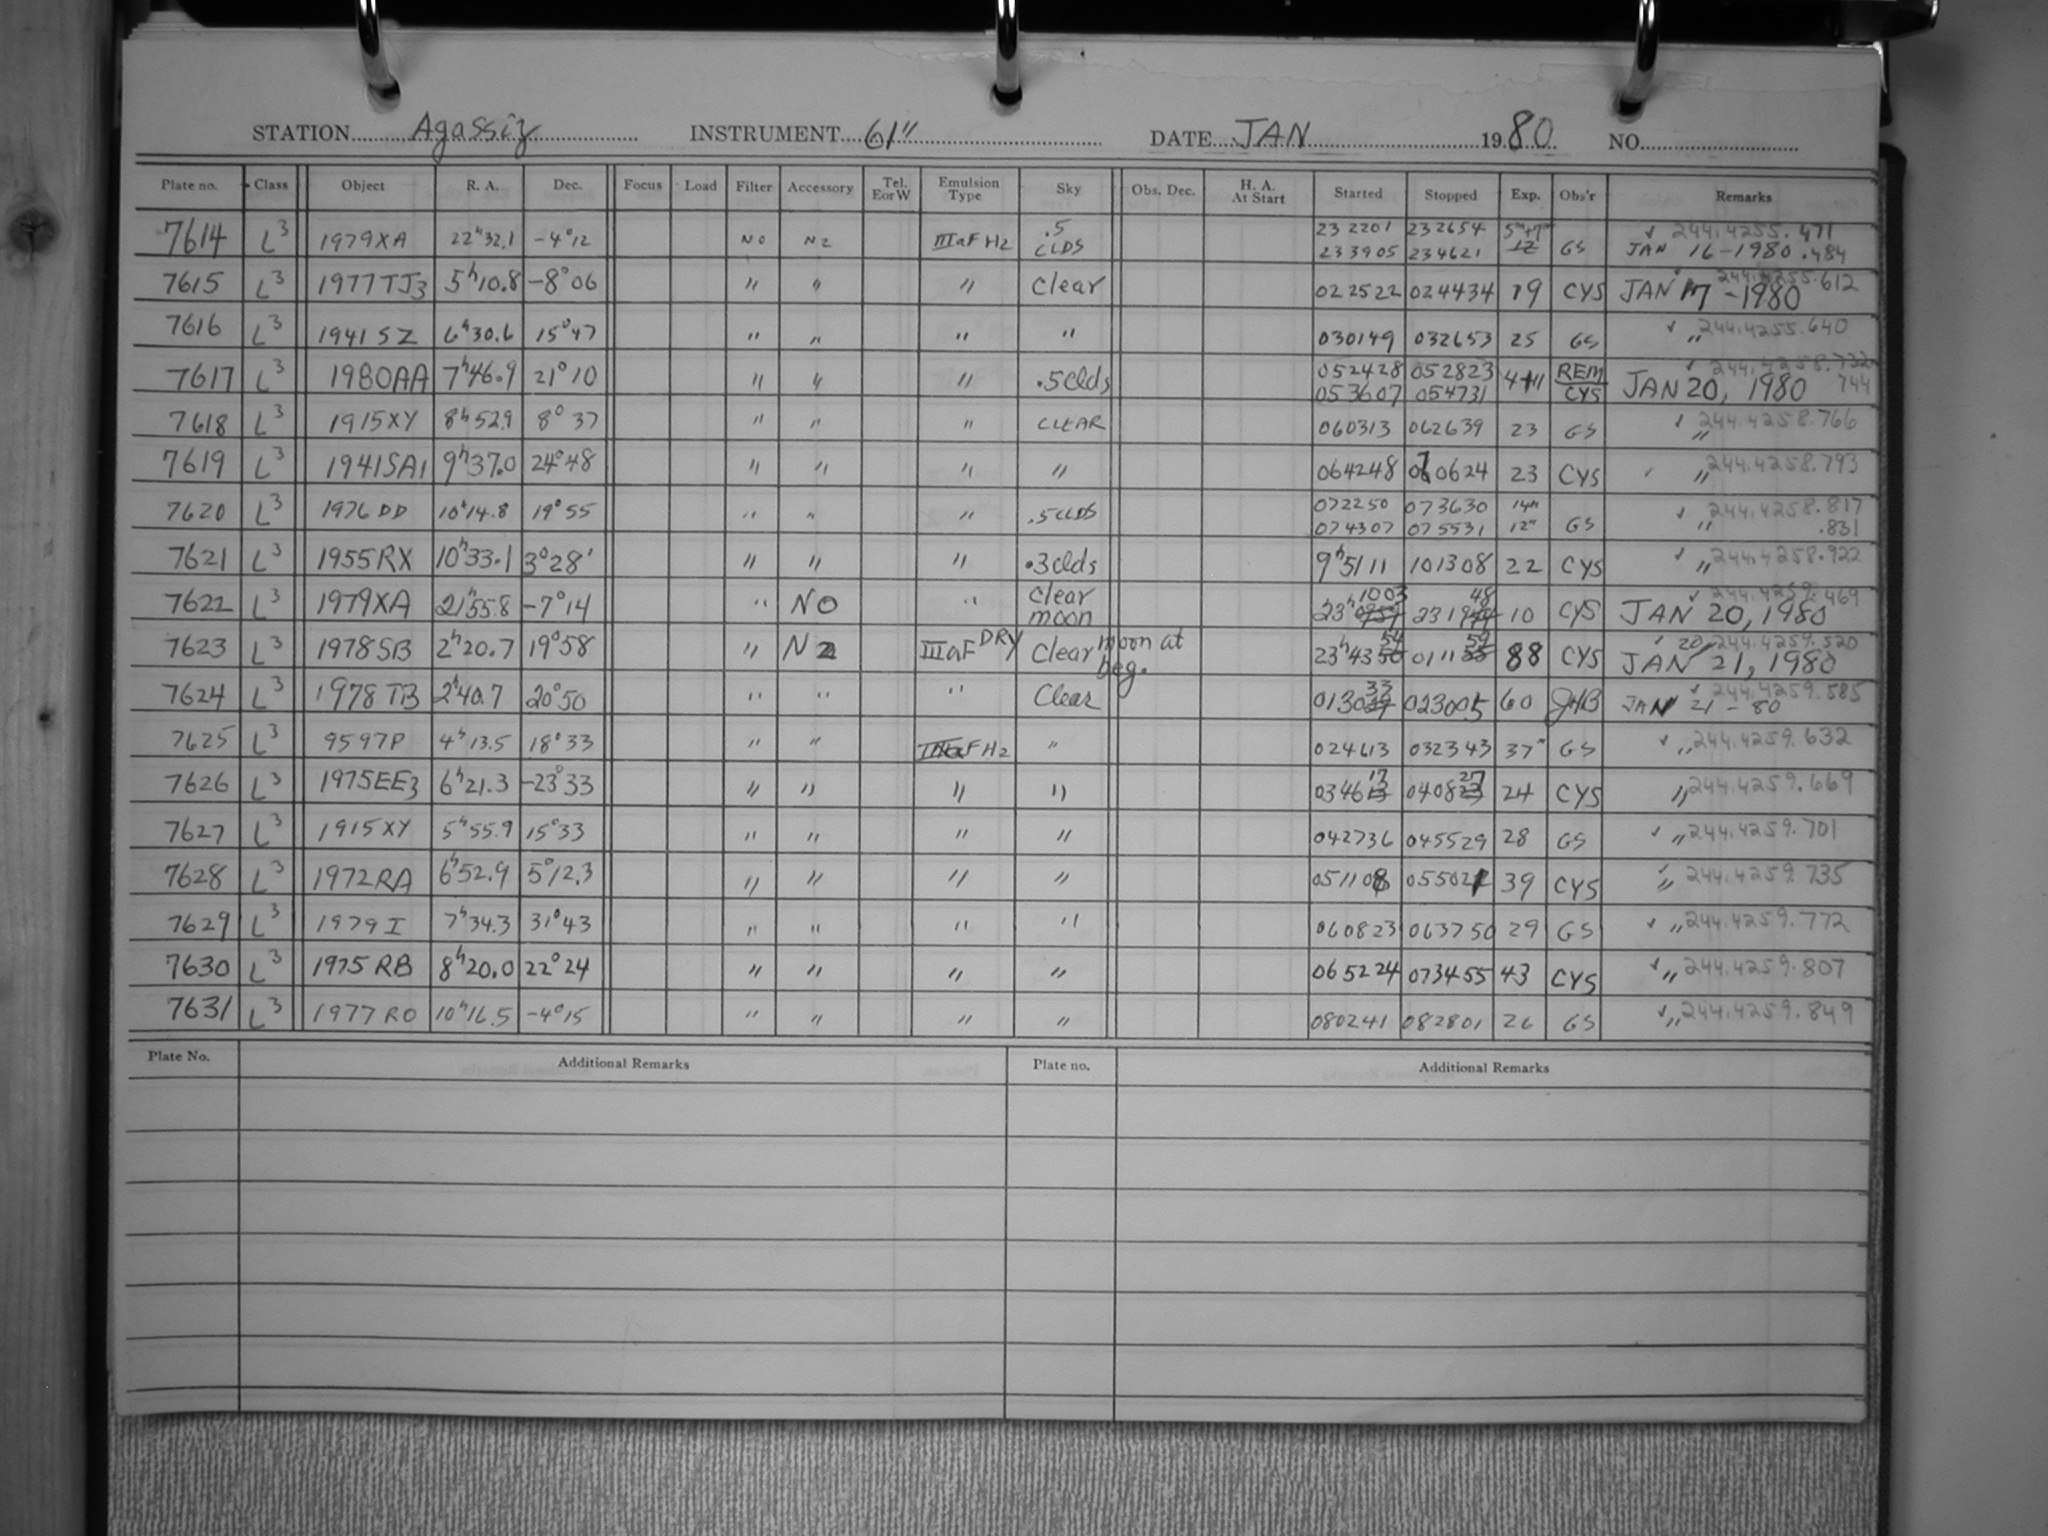 STATION Agassiz INSTRUMENT 61" DATE JAN 1980 NO.
Plate no. Class Object R. A. Dec. Focus Load Filter Accessory Tel. E or W Emulsion Type Sky Obs. Dec. H. A. At Start Started Stopped Exp. Obs'r Remarks
7614 L3 1979XA 22h32.1 -4°12 NO N2 IIIaF H2 .5 CLDS 232201 232654 5m+7m GS 244.4255.471
233905 234621 12 JAN 16-1980 .484
7615 L3 1977TJ3 5h10.8 -8°06 " " " Clear 022522 024434 19 CYS JAN 17-1980 244.4255.612
7616 L3 1941SZ 6h30.6 15°47 " " " " 030149 032653 25 GS " 244.4255.640
7617 L3 1980AA 7h46.9 21°10 " " " .5clds 052428 052823 4+11 REM 244.4258.732
053607 054731 CYS JAN 20, 1980 744
7618 L3 1915XY 8h52.9 8°37 " " " CLEAR 060313 062639 23 GS " 244.4258.766
7619 L3 1941SA1 9h37.0 24°48 " " " " 064248 070624 23 CYS " 244.4258.793
7620 L3 1976DD 10h14.8 19°55 " " " .5CLDS 072250 073630 14m 244.4258.817
074307 075531 12m GS " .831
7621 L3 1955RX 10h33.1 3°28' " " " .3clds 9h5111 101308 22 CYS " 244.4258.922
7622 L3 1979XA 21h55.8 -7°14 " NO " Clear moon 23h1003 231948 10 CYS JAN 20, 1980 244.4259.469
7623 L3 1978SB 2h20.7 19°58 " N2 IIIaF DRY Clear moon at beg. 23h4354 011159 88 CYS JAN 20/21, 1980 244.4259.520
7624 L3 1978TB 2h40.7 20°50 " " " Clear 013033 023005 60 JHB JAN 21-80 244.4259.585
7625 L3 9597P 4h13.5 18°33 " " IIIaF H2 " 024613 032343 37m GS " 244.4259.632
7626 L3 1975EE3 6h21.3 -23°33 " " " " 034617 040827 24 CYS " 244.4259.669
7627 L3 1915XY 5h55.9 15°33 " " " " 042736 045529 28 GS " 244.4259.701
7628 L3 1972RA 6h52.9 5°12.3 " " " " 051108 055021 39 CYS " 244.4259.735
7629 L3 1979I 7h34.3 31°43 " " " " 060823 063750 29 GS " 244.4259.772
7630 L3 1975RB 8h20.0 22°24 " " " " 065224 073455 43 CYS " 244.4259.807
7631 L3 1977RO 10h16.5 -4°15 " " " " 080241 082801 26 GS " 244.4259.849
Plate No. Additional Remarks Plate no. Additional Remarks